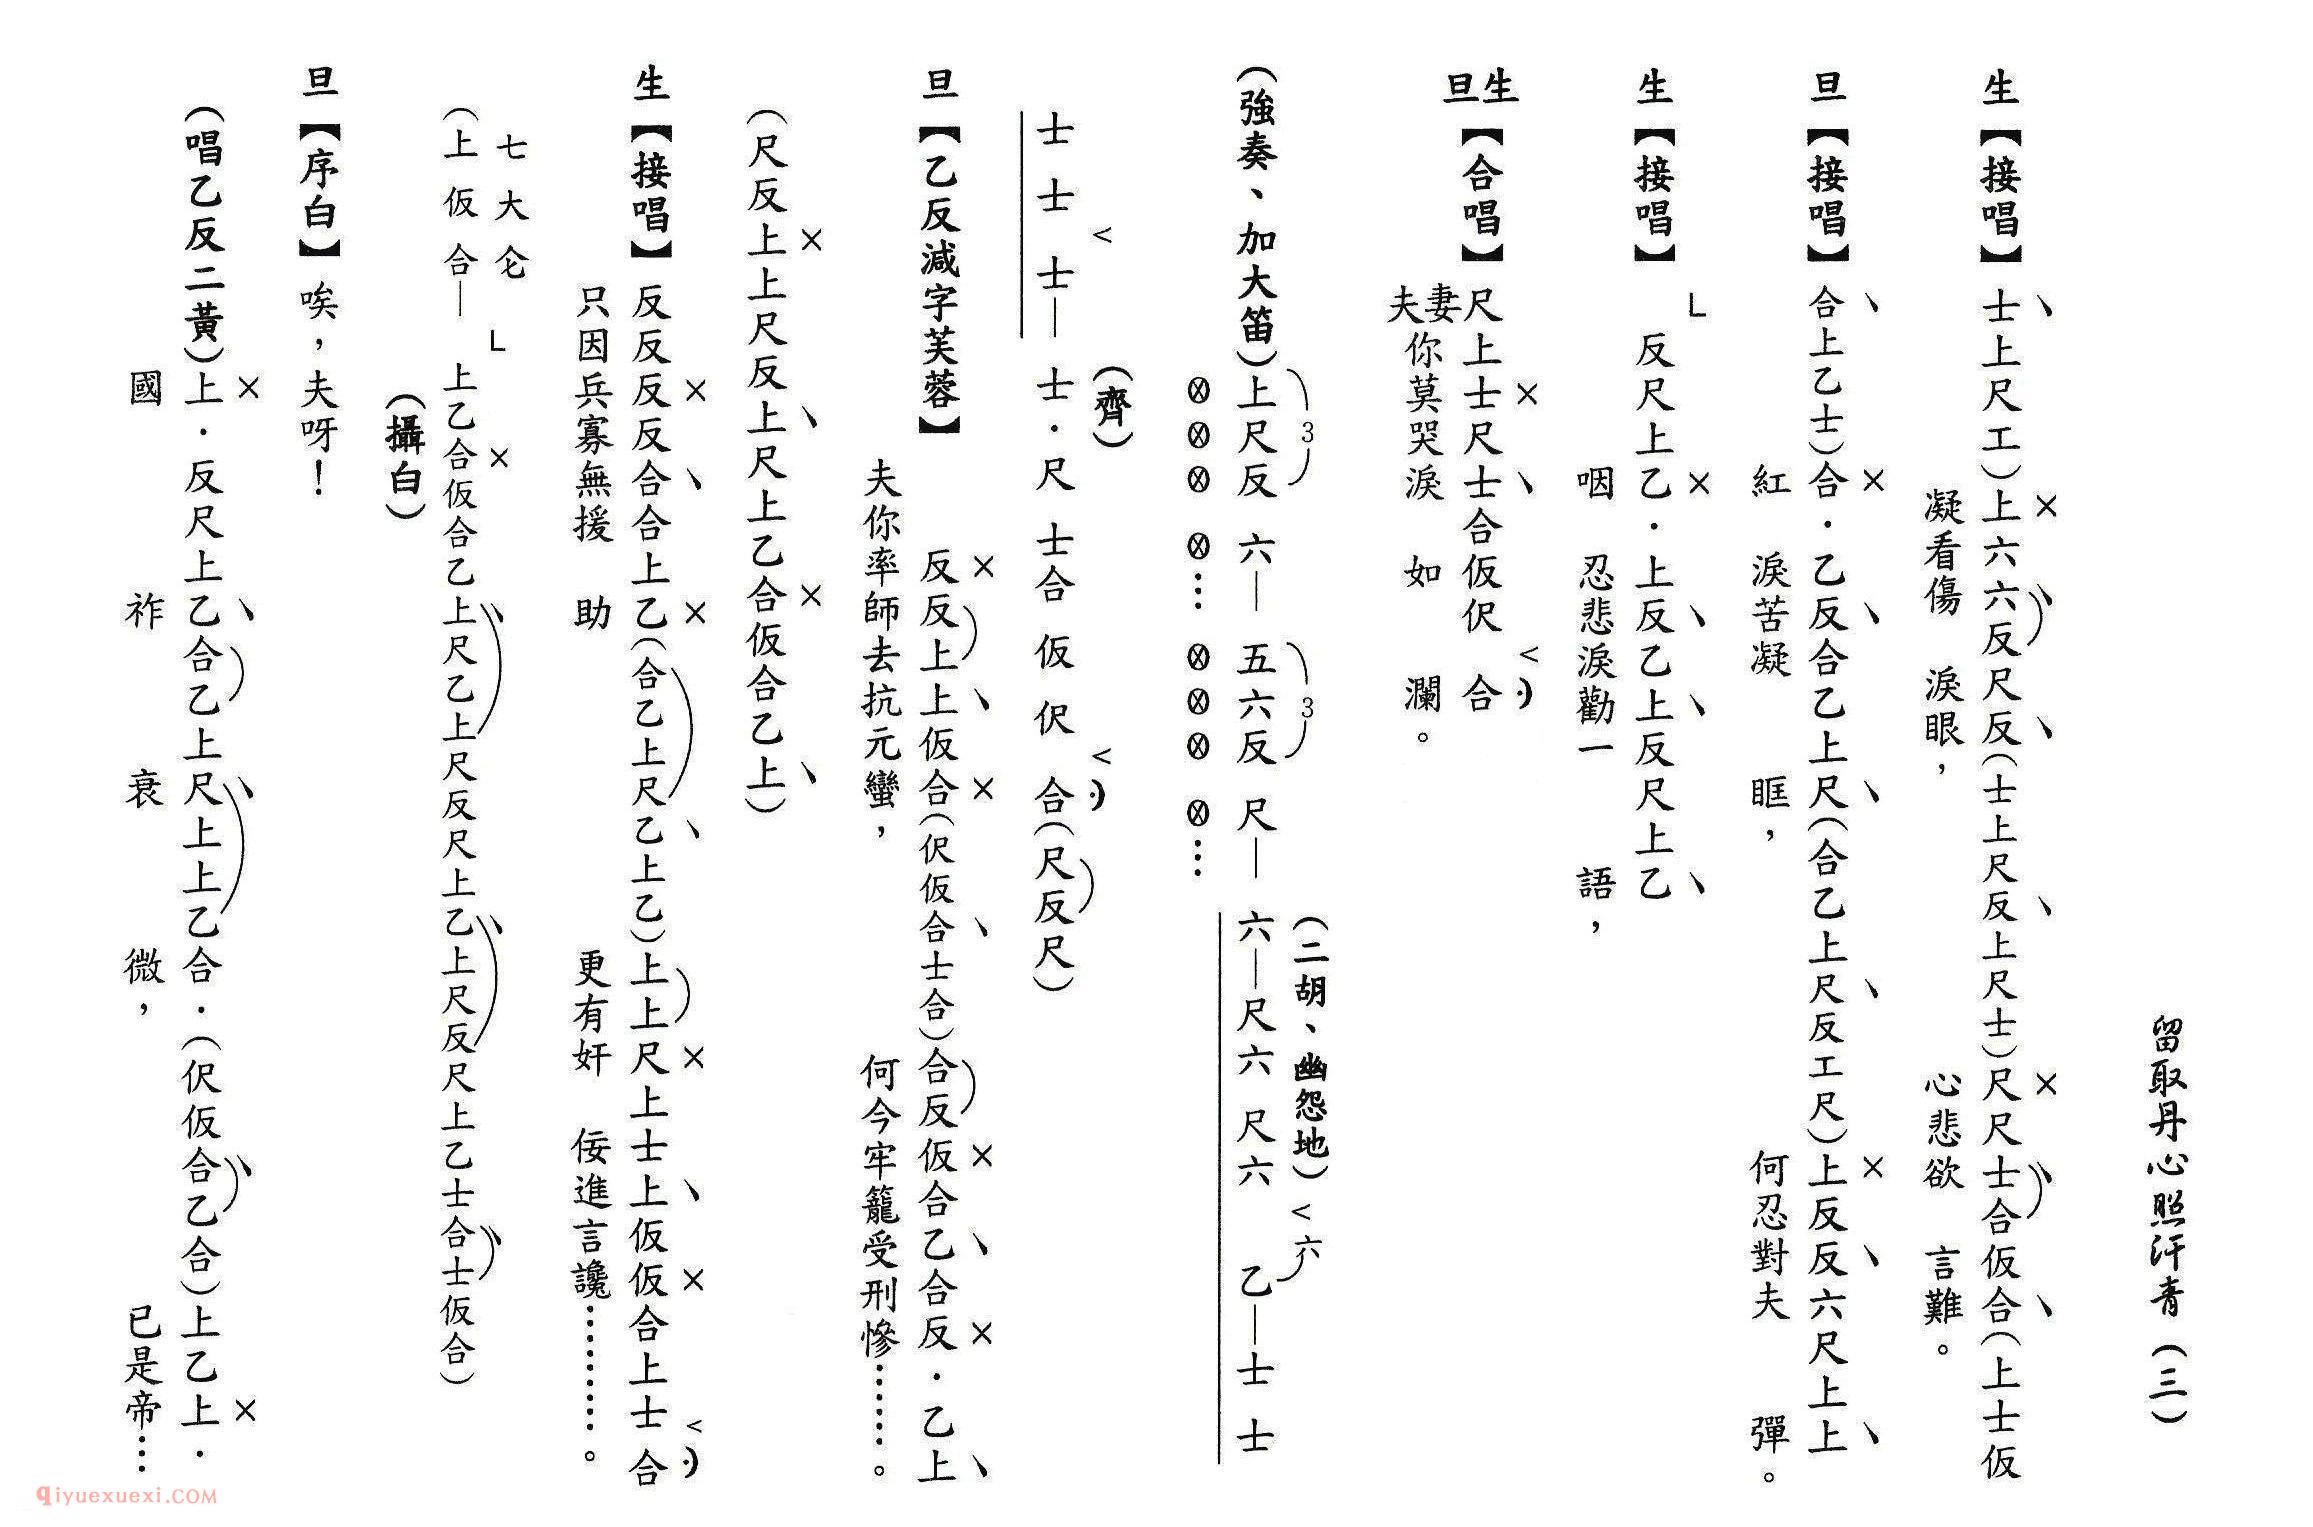 留取丹心照汗青（三）
生【接唱】（士上尺工）上六六反尺反（士上尺反上尺士）尺尺士合仮合（上士仮
凝看傷淚眼，心悲欲言難。
旦【接唱】合上乙士）合．乙反合乙上尺（合乙上尺反工尺）上反反六尺上上
紅淚苦凝眶，何忍對夫彈。
生【接唱】反尺上乙．上反乙上反尺上乙
咽忍悲淚勸一語，
生旦【合唱】尺上士尺士合仮伬合
夫妻你莫哭淚如瀾。
（二胡、幽怨地）
（強奏、加大笛）上尺反六—五六反尺—六—尺六尺六乙—士士
3 3 六
⊗⊗⊗⊗…⊗⊗⊗⊗…
（齊）
士士士—士．尺士合仮伬合（尺反尺）
旦【乙反減字芙蓉】反反上上仮合（伬仮合士合）合反仮合乙合反．乙上
夫你率師去抗元蠻，何今牢籠受刑慘………。
（尺反上上尺反上尺上乙合仮合乙上）
生【接唱】反反反反合合上乙（合乙上尺乙上乙）上上尺上士上仮仮合上士合
只因兵寡無援助更有奸佞進言讒………。
七大仑
（上仮合—上乙合仮合乙上尺乙上尺反尺上乙上尺反尺上乙士合士仮合）
（攝白）
旦【序白】唉，夫呀！
（唱乙反二黃）上．反尺上乙合乙上尺上上乙合．（伬仮合乙合）上乙上．
國祚衰微，已是帝…
qiyuexuexi.COM